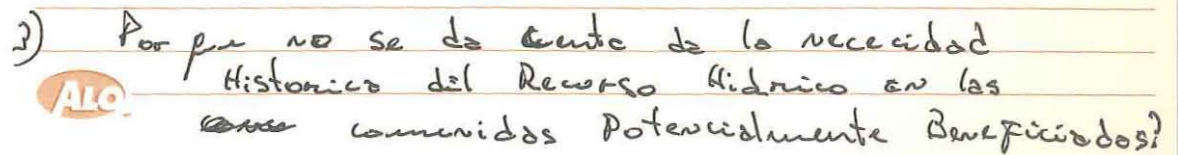 3) Por que no se da cuenta de la nececidad
Historica del Recurso Hidrico en las
ALO
comunidas Potencialmente Beneficiadas?